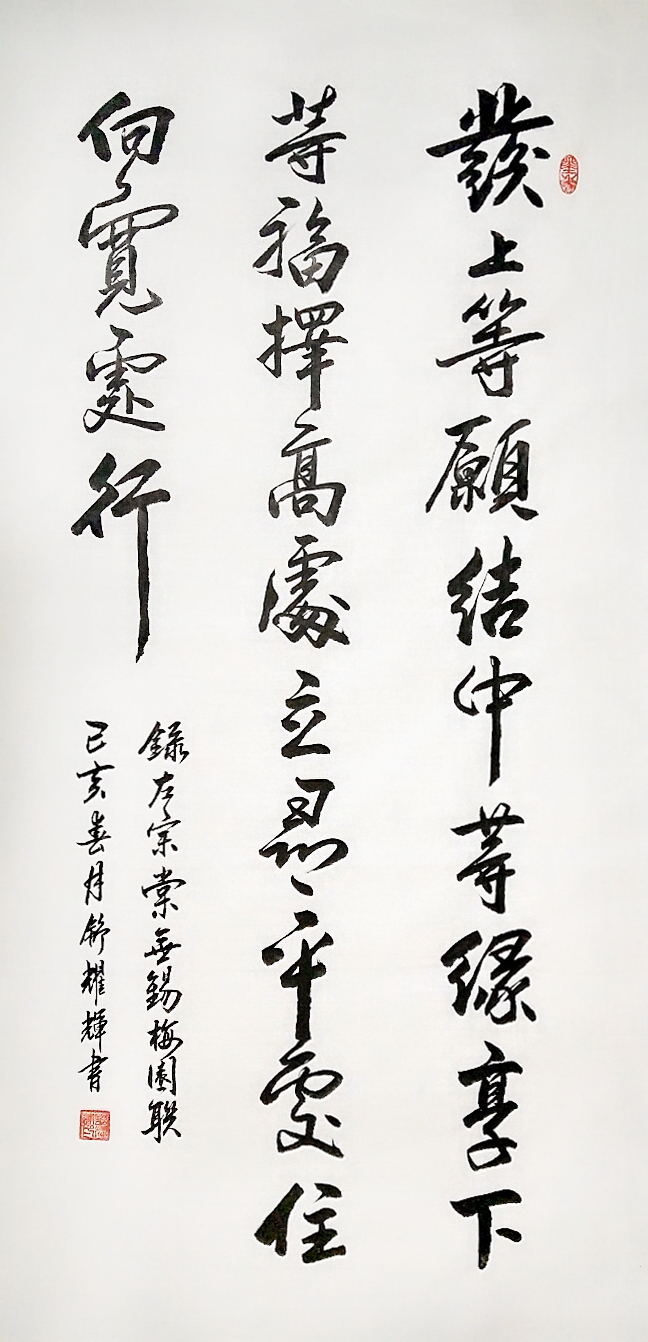 發上等願結中等緣享下
等福擇高處立尋平處住
向寬處行
錄左宗棠無錫梅園聯
己亥春月舒耀輝書